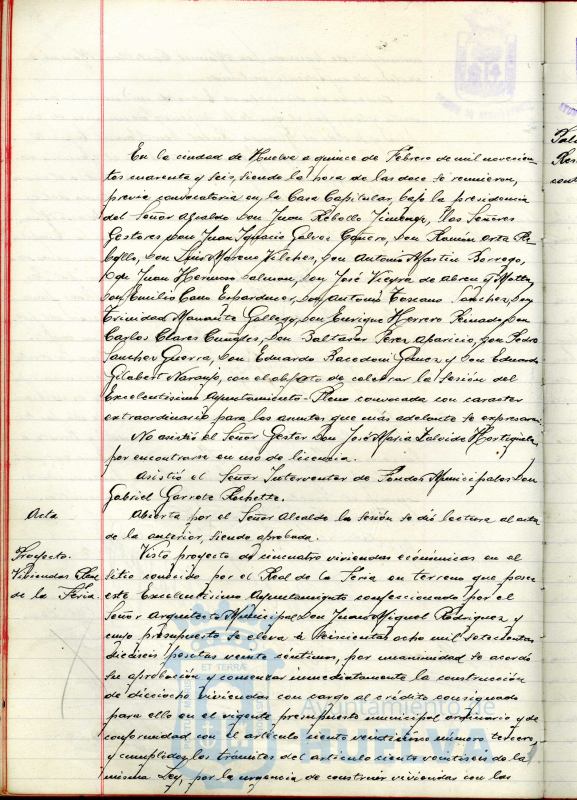 En la ciudad de Huelva a quince de Febrero de mil novecien-
tos cuarenta y seis, siendo la hora de las doce se reunieron,
previa convocatoria en la Casa Capitular, bajo la presidencia
del Señor Alcalde Don Juan Rebollo Jimenez, los Señores
Gestores Don Juan Ignacio Galvez Cañero, Don Ramón Arta Re-
bollo, Don Luis Moreno Vilches, Don Antonio Martin Borrego,
Don Juan Hermoso Salmon, Don José Vieyra de Abreu y Motta,
Don Emilio Cano Don Antonio Toscano Sanchez, Don
Trinidad Gallego, Don Enrique Herrero Don
Carlos Clares Don Baltasar Perez Aparicio, Don Pedro
Sanchez Guerra, Don Eduardo Gómez y Don Eduardo
Gilabert Naranjo, con el objeto de celebrar la sesión del
Excelentisimo Ayuntamiento-Pleno convocada con caracter
extraordinario para los asuntos que más adelante se expresaran.
No asistió el Señor Gestor Don José Maria
por encontrarse en uso de licencia.
Asistió el Señor Interventor de Fondos Municipales Don
Gabriel Garrote
Acta
Abierta por el Señor Alcalde la sesión se dió lectura al acta
de la anterior, siendo aprobada.
Proyecto.
Viviendas
de la Feria.
Visto proyecto de cincuatro viviendas económicas en el
sitio conocido por el Real de la Feria en terreno que posee
este Excelentisimo Ayuntamiento confeccionado por el
Señor Arquitecto Municipal Don Juan Miguel Rodriguez y
cuyo presupuesto se eleva a seiscientas ocho mil setecientas
dieciseis pesetas veinte céntimos, por unanimidad se acordó
su aprobación y comenzar inmediatamente la construcción
de dieciocho viviendas con cargo al crédito consignado
para ello en el vigente presupuesto municipal ordinario y de
conformidad con el articulo ciento número tercero,
y cumplidos los trámites del articulo ciento veintiseis de la
misma Ley, por la urgencia de construir viviendas con las
Ayuntamiento de
HUELVA
ET TERRÆ